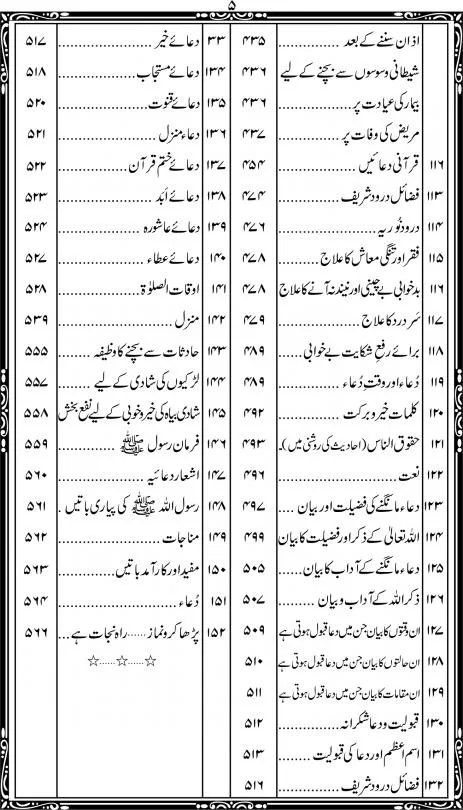 ۵
اذان سننے کے بعد ............... ۴۳۵
شیطانی وسوسوں سے بچنے کے لیے ۴۳۶
بیمار کی عیادت پر ............... ۴۳۶
مریض کی وفات پر ............... ۴۳۷
۱۱۶ قرآنی دعائیں ............... ۴۵۴
۱۱۳ فضائل درود شریف ............... ۴۷۴
۱۱۴ درود نُوریہ ............... ۴۷۶
۱۱۵ فقر اور تنگی معاش کا علاج ...... ۴۷۸
۱۱۶ بدخوابی بے چینی اور نیند نہ آنے کا علاج ۴۷۸
۱۱۷ سَر درد کا علاج ............... ۴۷۹
۱۱۸ برائے رفع شکایت بے خوابی ۴۸۹
۱۱۹ دُعاء اور وقتِ دُعاء ............... ۴۸۹
۱۲۰ کلمات خیر و برکت ............... ۴۹۲
۱۲۱ حقوق الناس (احادیث کی روشنی میں).. ۴۹۳
۱۲۲ نعت ............... ۴۹۶
۱۲۳ دعاء مانگنے کی فضیلت اور بیان .... ۴۹۷
۱۲۴ اللہ تعالیٰ کے ذکر اور فضیلت کا بیان ۴۹۹
۱۲۵ دعاء مانگنے کے آداب کا بیان ...... ۵۰۵
۱۲۶ ذکر اللہ کے آداب و بیان ......... ۵۰۷
۱۲۷ ان وقتوں کا بیان جن میں دعا قبول ہوتی ہے ۵۰۹
۱۲۸ ان حالتوں کا بیان جن میں دعا قبول ہوتی ہے ۵۱۰
۱۲۹ ان مقامات کا بیان جن میں دعا قبول ہوتی ہے ۵۱۱
۱۳۰ قبولیت و دعا شکرانہ ............... ۵۱۲
۱۳۱ اسم اعظم اور دعا کی قبولیت ....... ۵۱۳
۱۳۲ فضائل درود شریف ............... ۵۱۶
۳۳ دعائے خیر ............... ۵۱۷
۱۳۴ دعائے مستجاب ............... ۵۱۸
۱۳۵ دعائے قنوت ............... ۵۲۰
۱۳۶ دعاء منزل ............... ۵۲۱
۱۳۷ دعائے ختم قرآن ............... ۵۲۲
۱۳۸ دعائے ابَد ............... ۵۲۳
۱۳۹ دعائے عاشورہ ............... ۵۲۴
۱۴۰ دعائے عطاء ............... ۵۲۷
۱۴۱ اوقات الصلوٰۃ ............... ۵۲۸
۱۴۲ منزل ............... ۵۳۹
۱۴۳ حادثات سے بچنے کا وظیفہ ....... ۵۵۵
۱۴۴ لڑکیوں کی شادی کے لیے ....... ۵۵۷
۱۴۵ شادی بیاہ کی خیر و خوبی کے لیے نفع بخش ۵۵۸
۱۴۶ فرمان رسول ﷺ ............... ۵۵۹
۱۴۷ اشعار دعائیہ ............... ۵۶۰
۱۴۸ رسول اللہ ﷺ کی پیاری باتیں . ۵۶۱
۱۴۹ مناجات ............... ۵۶۲
۱۵۰ مفید اور کار آمد باتیں ............... ۵۶۳
۱۵۱ دُعاء ............... ۵۶۴
۱۵۲ پڑھا کرو نماز ...... راہ نجات ہے ... ۵۶۶
☆......☆......☆